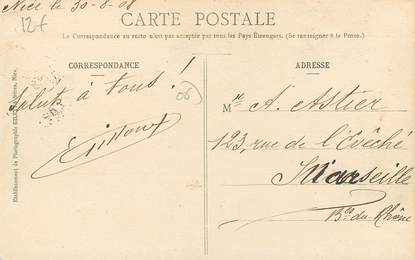 Nice le 30-8-08
12f
CARTE POSTALE
La Correspondance au recto n'est pas acceptée par tous les Pays Étrangers. (Se renseigner à la Poste.)
CORRESPONDANCE
ADRESSE
Salut à tous !
06
M. A. Astier
123, rue de l'Évêché
Marseille
B. du-Rhône
Etablissement de Photographie Nice.